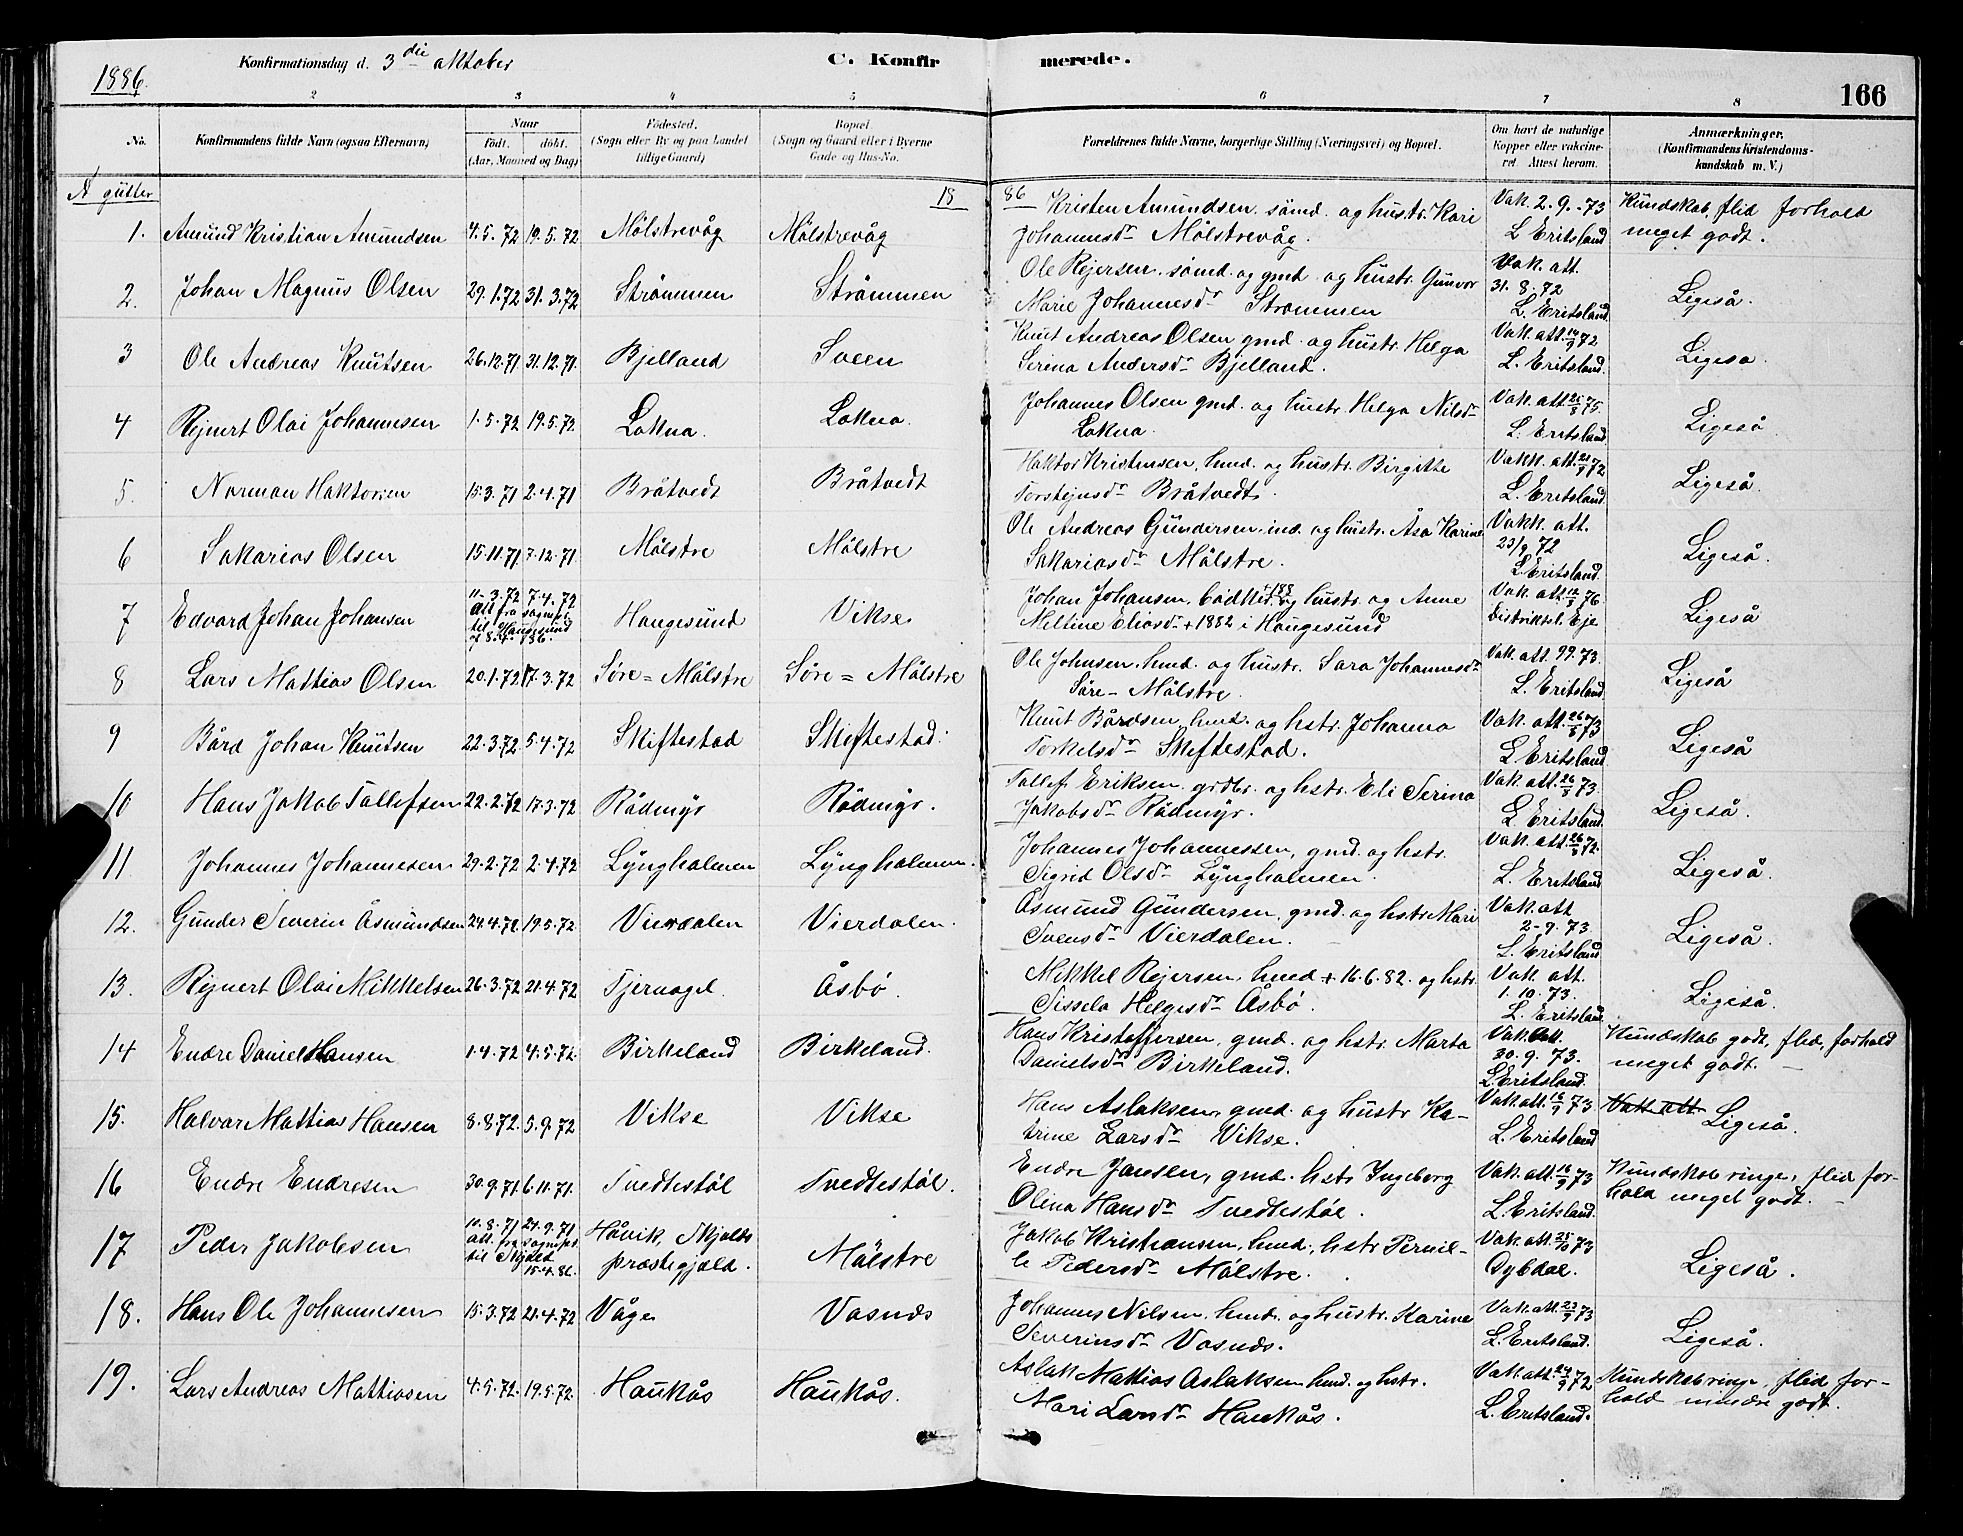 1886. Konfirmationsdag d. 3die oktober C. Konfirmerede. 166
2 3 4 5 6 7 8
No. Konfirmandens fulde Navn (ogsaa Efternavn) Naar født. døbt. (Aar, Maaned og Dag) Fødested. (Sogn eller By og paa Landet tillige Gaard) Bopæl. (Sogn og Gaard eller i Byerne Gade og Hus-No. Forældrenes fulde Navne, borgerlige Stilling (Næringsvei) og Bopæl. Om havt de naturlige Kopper eller vakcineret. Attest herom. Anmærkninger, (Konfirmandens Kristendomskundskab m. V.)
A gutter 18 86
1. Amund Kristian Amundsen 4.5.72 19.5.72 Mölstrevåg Mölstrevåg Kristen Amundsen sömd. og hustr. Kari Vak. 2.9.-73 Kundskab, flid forhold
Johannesdr Mölstrevåg. L Eritsland meget godt.
2. Johan Magnus Olsen 29.1.72 31.3.72 Strömmen Strömmen Ole Rejersen sömd. og gmd. og hustr. Gunvor Vak. att.
Marie Johannesdr Strömmen 31.8.72 L. Eritsland. Ligeså.
3 Ole Andreas Knutsen 26.12.71 31.12.71. Bjelland Sveen Knut Andreas Olsen gmd. og hustr. Helga Vak. att. 14/9 72
Serina Andersdr Bjelland. L. Eritsland. Ligeså.
4 Rejnert Olai Johannesen 1.5.72 19.5.72 Lokna. Lokna. Johannes Olsen gmd. og hustr. Helga Nilsdr Vak. att 26/8 75.
Lokna. L. Eritsland Ligeså
5. Norman Haktorsen 15.3.71 2.4.71 Bråtvedt Bråtvedt Haktor Kristensen, hmd. og hustr. Birgitte Vakk. att. 72
Torstejnsdr Bråtvedt. L. Eritsland Ligeså.
6 Sakarias Olsen 15.11.71 7.12.71. Mölstre Mölstre Ole Andreas Gundersen ind. og hustr. Åsa Karine Vakk. att.
Sakariasdr Mölstre. 23/9 72 L Eritsland. Ligeså.
7 Edvard Johan Johansen 11.3.72 7.4.72 Haugesund Vikse. Johan Johansen, og hustr. og Anne Vak. att. 76
Att fra sognepr. til Haugesund Meltine Eliasdr +1882 i Haugesund Distriktsl. Eje Ligeså
8 Lars Mattias Olsen 20.1.72 17.3.72 Søre=Mölstre Søre=Mölstre Ole Johnsen, hmd. og hustr. Sara Johannesdr Vak. att. 73.
Söre-Mölstre. L. Eritsland. Ligeså
9 Bård Johan Knutsen 22.3.72. 5.4.72 Skiftestad Skiftestad. Knut Bårdsen, hmd. og hstr. Johanna Vak. att. 26/8 73
Torkelsdr Skiftestad. L. Eritsland. Ligeså
10 Hans Jakob Tallefsen 22.2.72 17.3.72 Rödmyr Rödmyr. Tallef Eriksen grdbr. og hstr. Eli Serina Vak. att. 26/8 73.
Jakobsdr Rödmyr. L. Eritsland. Ligeså.
11 Johannes Johannesen 29.2.72 2.4.72 Lyngholmen Lyngholmen. Johannes Johannessen, gmd. og hstr. Vak. att. 26/8 72.
Sigrid Olsdr Lyngholmen. L. Eritsland Ligeså.
12. Gunder Severin Åsmundsen 24.4.72. 19.5.72 Vierdalen Vierdalen. Åsmund Gundersen, gmd. og hstr. Mari Vak. att
Svensdr Vierdalen. 2-9.73 L. Eritsland Ligeså.
13. Rejnert Olai Mikkelsen 26.3.72 21.4.72 Tjernagel. Åsbö. Mikkel Rejersen, hmd + 16.6.82. og hstr. Vak. att.
Sissela Helgesdr Åsbö. 1.10.73. L. Eritsland Ligeså.
14 Endre Daniel Hansen 1.4.72 4.5.72. Birkeland Birkeland. Hans Kristoffersen, gmd. og hstr. Marta Vak. att. Kundskab godt, flid, forhold
Danielsdr Birkeland. 30.9.73. L. Eritsland. meget godt.
15. Halvar Mattias Hansen 8.8.72. 5.9.72 Vikse Vikse Hans Aslaksen, gmd. og hustr. Ka- Vak. att. 73. Vak att.
trine Larsdr Vikse. L. Eritsland Ligeså.
16 Endre Endresen 30.9.71. 6.11.71. Tvedtestöl Tvedtestöl. Endre Jansen, gmd. hstr. Ingeborg Vak. att. 16/9 73 Kundskab ringe, flid for-
Olina Hansdr Tvedtestöl. L. Eritsland. hold meget godt.
17 Peder Jakobsen 10.8.71 24.9.71 Håvik, Skjolds Mölstre Jakob Kristiansen, hmd., hstr Pernil- Vak. att. 25/10 73
att. fra sognepr. til 15.4.86. præstegjæld. le Pedersdr Mölstre. Dybdal. Ligeså.
18. Hans Ole Johannesen 15.3.72 21.4.72 Våge Vasnæs Johannes Nilsen, hmd. og hustr. Karine Vak. att. 23/9 73
Severinsdr Vasnæs. L. Eritsland. Ligeså.
19. Lars Andreas Mattiasen 4.5.72. 19.5.72. Haukås Haukås. Aslak Mattias Aslaksen hmd. og hstr. Vak. att. 24/9 72 Kundskab ringe, flid for-
Mari Larsdr Haukås. L. Eritsland. hold mindre godt.